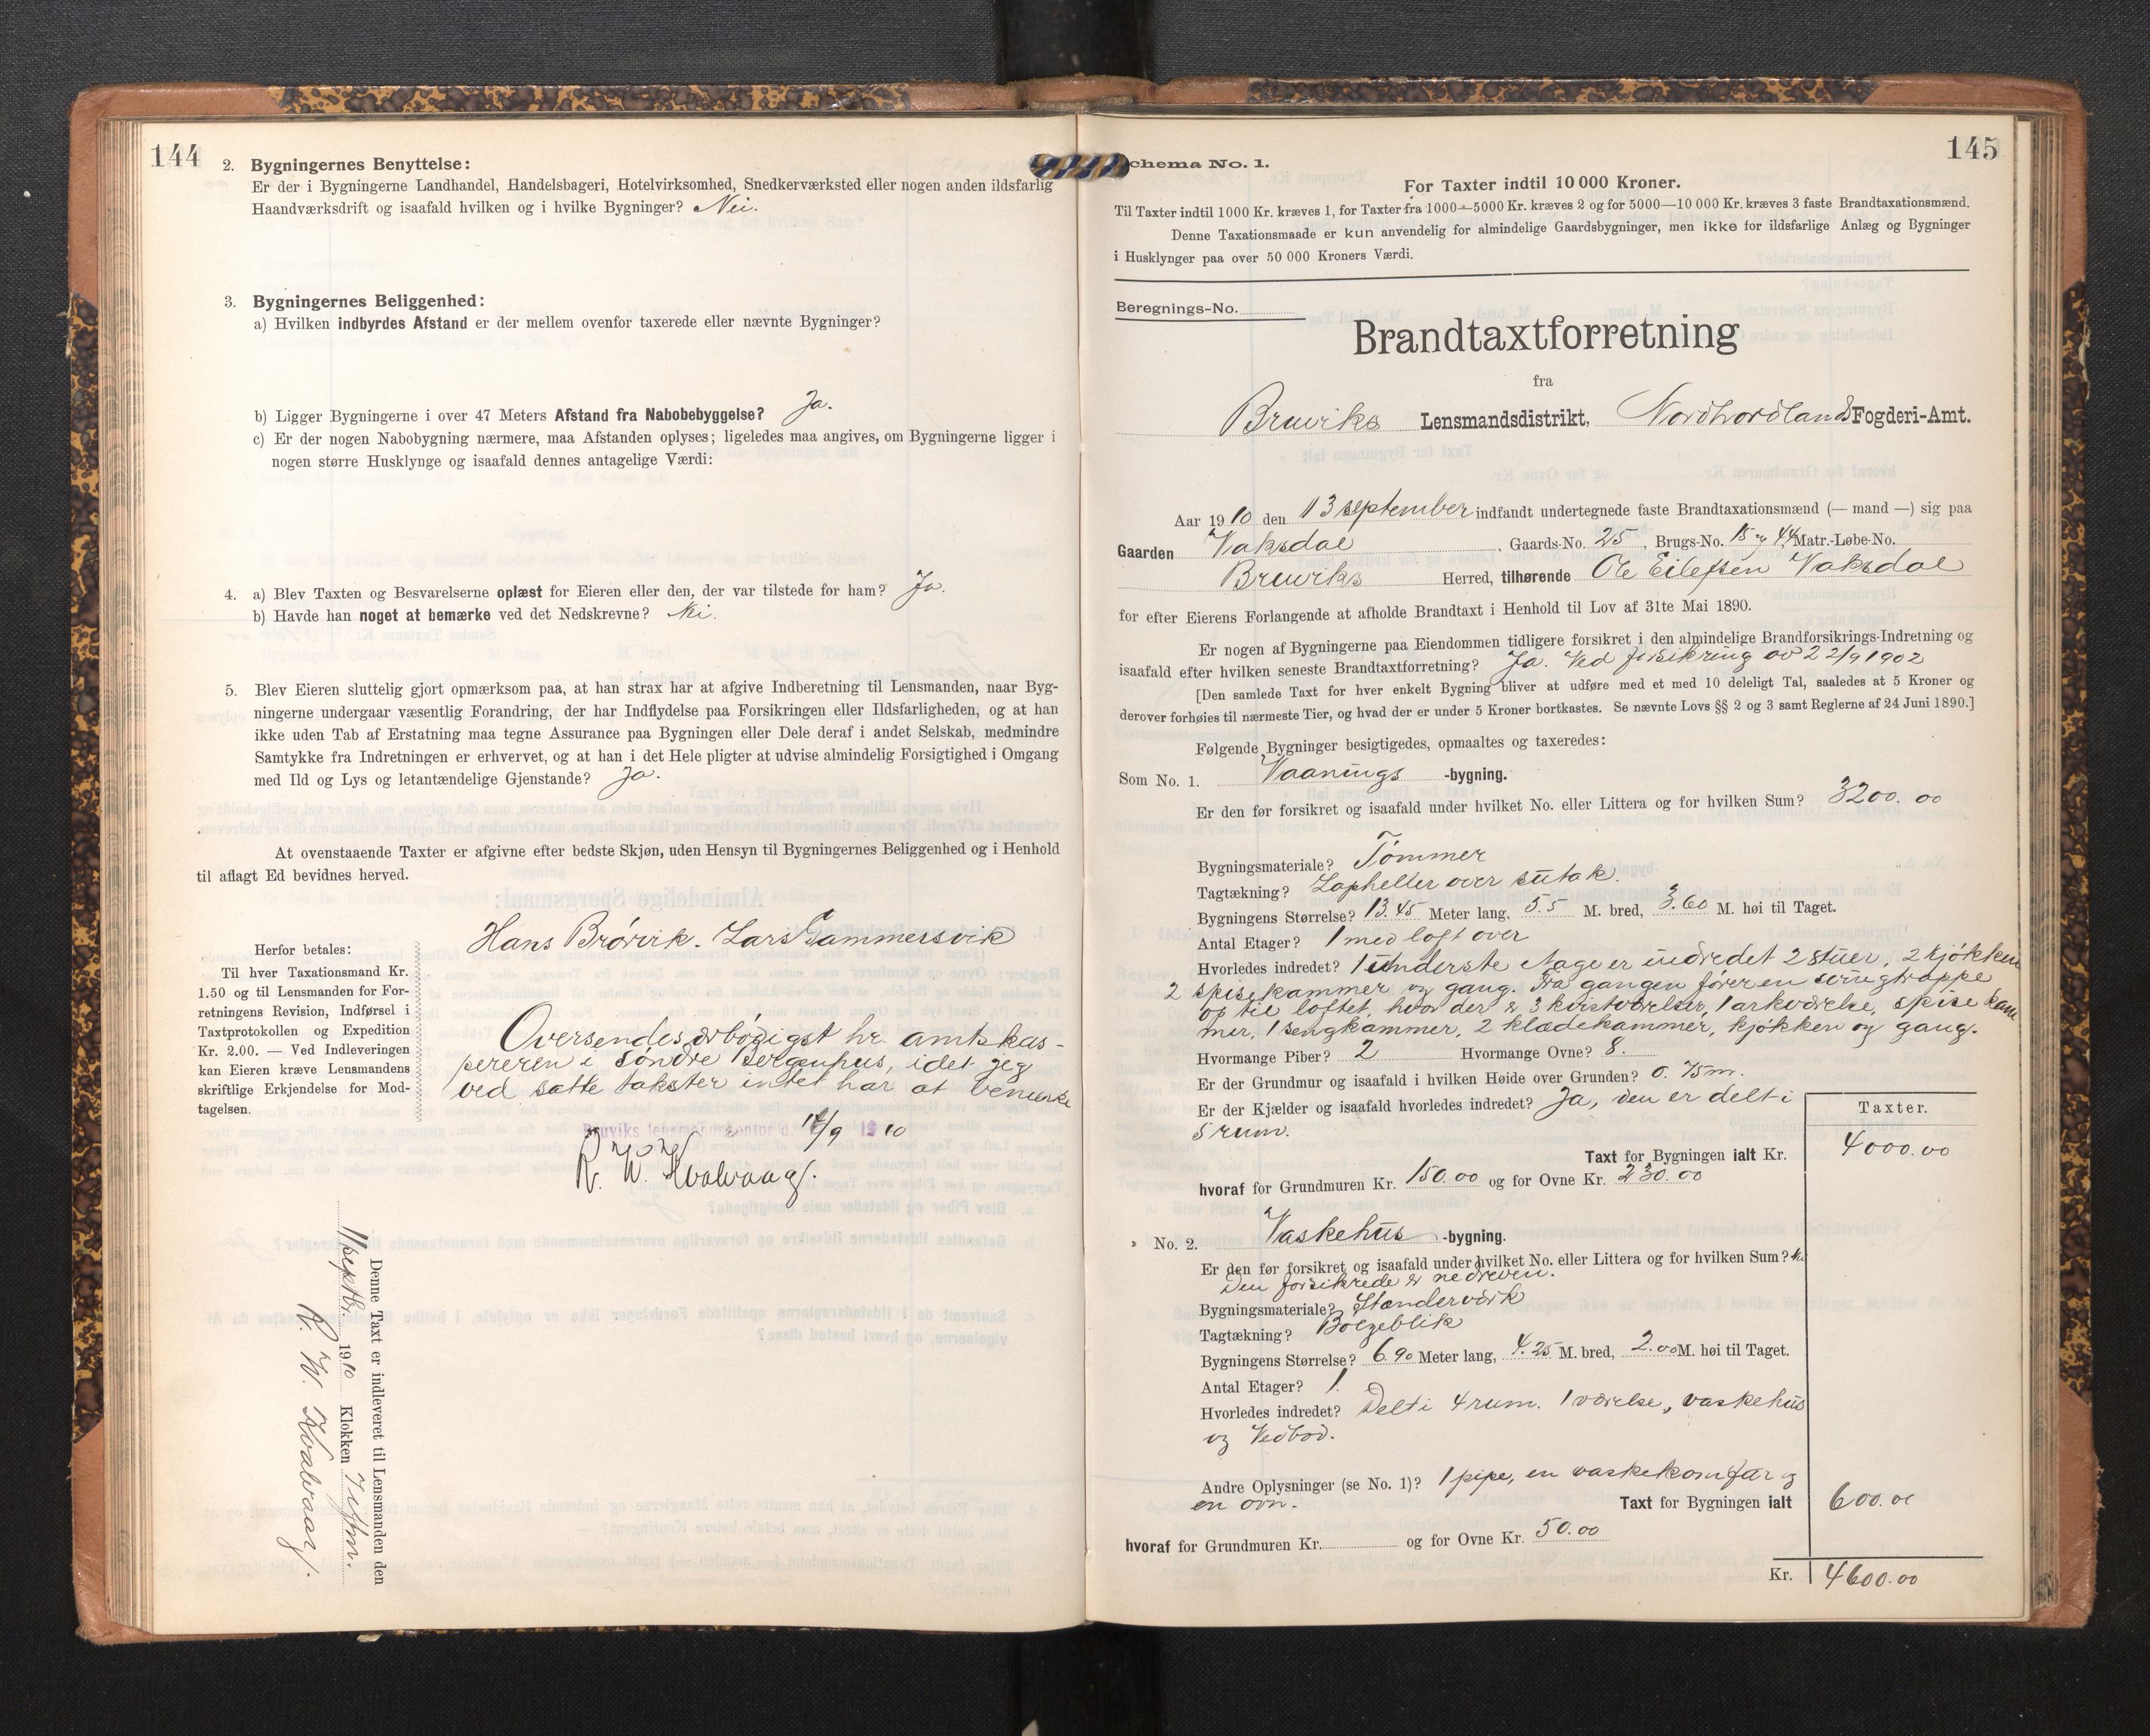 144
2. Bygningernes Benyttelse:
Er der i Bygningerne Landhandel, Handelsbageri, Hotelvirksomhed, Snedkerværksted eller nogen anden ildsfarlig
Haandværksdrift og isaafald hvilken og i hvilke Bygninger? Nei.
3. Bygningernes Beliggenhed:
a) Hvilken indbyrdes Afstand er der mellem ovenfor taxerede eller nævnte Bygninger?
b) Ligger Bygningerne i over 47 Meters Afstand fra Nabobebyggelse? Ja.
c) Er der nogen Nabobygning nærmere, maa Afstanden oplyses; ligeledes maa angives, om Bygningerne ligger i
nogen større Husklynge og isaafald dennes antagelige Værdi:
4. a) Blev Taxten og Besvarelserne oplæst for Eieren eller den, der var tilstede for ham? Ja.
b) Havde han noget at bemærke ved det Nedskrevne? Nei.
5. Blev Eieren sluttelig gjort opmærksom paa, at han strax har at afgive Indberetning til Lensmanden, naar Byg-
ningerne undergaar væsentlig Forandring, der har Indflydelse paa Forsikringen eller Ildsfarligheden, og at han
ikke uden Tab af Erstatning maa tegne Assurance paa Bygningen eller Dele deraf i andet Selskab, medmindre
Samtykke fra Indretningen er erhvervet, og at han i det Hele pligter at udvise almindelig Forsigtighed i Omgang
med Ild og Lys og letantændelige Gjenstande? Ja.
At ovenstaaende Taxter er afgivne efter bedste Skjøn, uden Hensyn til Bygningernes Beliggenhed og i Henhold
til aflagt Ed bevidnes herved.
Hans Brørvik. Lars Gammersvik
Herfor betales:
Til hver Taxationsmand Kr.
1.50 og til Lensmanden for For-
retningens Revision, Indførsel i
Taxtprotokollen og Expedition
Kr. 2.00. — Ved Indleveringen
kan Eieren kræve Lensmandens
skriftlige Erkjendelse for Mod-
tagelsen.
Oversendes ærbødigst hr. amtskas-
sereren i søndre Bergenhus, idet jeg
ved satte takster intet har at bemerke
Bruviks lensmandskontor d. 14/9 1910
R. W. Kvalvaag.
Denne Taxt er indleveret til Lensmanden den
11 septbr. 1910 Klokken 7 efm.
R. W. Kvalvaag.
145
Schema No. 1.
For Taxter indtil 10 000 Kroner.
Til Taxter indtil 1000 Kr. kræves 1, for Taxter fra 1000—5000 Kr. kræves 2 og for 5000—10 000 Kr. kræves 3 faste Brandtaxationsmænd.
Denne Taxationsmaade er kun anvendelig for almindelige Gaardsbygninger, men ikke for ildsfarlige Anlæg og Bygninger
i Husklynger paa over 50 000 Kroners Værdi.
Beregnings-No.
Brandtaxtforretning
fra
Bruviks Lensmandsdistrikt, Nordhordlands Fogderi-Amt.
Aar 1910 den 13 september indfandt undertegnede faste Brandtaxationsmænd (— mand —) sig paa
Gaarden Vaksdal, Gaards-No. 25, Brugs-No. 15 og 44, Matr.-Løbe-No.
Bruviks Herred, tilhørende Ole Eilefsen Vaksdal
for efter Eierens Forlangende at afholde Brandtaxt i Henhold til Lov af 31te Mai 1890.
Er nogen af Bygningerne paa Eiendommen tidligere forsikret i den almindelige Brandforsikrings-Indretning og
isaafald efter hvilken seneste Brandtaxtforretning? Ja. Ved forsikring av 22/9 1902
[Den samlede Taxt for hver enkelt Bygning bliver at udføre med et med 10 deleligt Tal, saaledes at 5 Kroner og
derover forhøies til nærmeste Tier, og hvad der er under 5 Kroner bortkastes. Se nævnte Lovs §§ 2 og 3 samt Reglerne af 24 Juni 1890.]
Følgende Bygninger besigtigedes, opmaaltes og taxeredes:
Som No. 1. Vaanings -bygning.
Er den før forsikret og isaafald under hvilket No. eller Littera og for hvilken Sum? 3200.00
Bygningsmateriale? Tømmer
Tagtækning? Lapheller over sutak.
Bygningens Størrelse? 13.45 Meter lang, 5.5 M. bred, 3.60 M. høi til Taget.
Antal Etager? 1 med loft over
Hvorledes indredet? I underste etage er indredet 2 stuer, 2 kjøkken
2 spisekammer og gang. Fra gangen fører en svingtrappe
op til loftet, hvor der er 3 kvistværelser, 1 arkværelse, spisekam
mer, 1 sengkammer, 2 klædekammer, kjøkken og gang.
Hvormange Piber? 2 Hvormange Ovne? 8.
Er der Grundmur og isaafald i hvilken Høide over Grunden? 0.75 m.
Er der Kjælder og isaafald hvorledes indredet? Ja, den er delt i
5 rum.
Taxter.
Taxt for Bygningen ialt Kr. 4000.00
hvoraf for Grundmuren Kr. 150.00 og for Ovne Kr. 230.00
» No. 2. Vaskehus -bygning.
Er den før forsikret og isaafald under hvilket No. eller Littera og for hvilken Sum? Nei
Den forsikrede er nedreven.
Bygningsmateriale? Stenderværk
Tagtækning? Bølgeblik
Bygningens Størrelse? 6.90 Meter lang, 4.25 M. bred, 2.00 M. høi til Taget.
Antal Etager? 1.
Hvorledes indredet? Delt i 4 rum. 1 værelse, vaskehus
og Vedbod.
Andre Oplysninger (se No. 1)? 1 pipe, en vaskekomfur og
en ovn.
Taxt for Bygningen ialt 600.00
hvoraf for Grundmuren Kr. og for Ovne Kr. 50.00
Kr. 4600.00